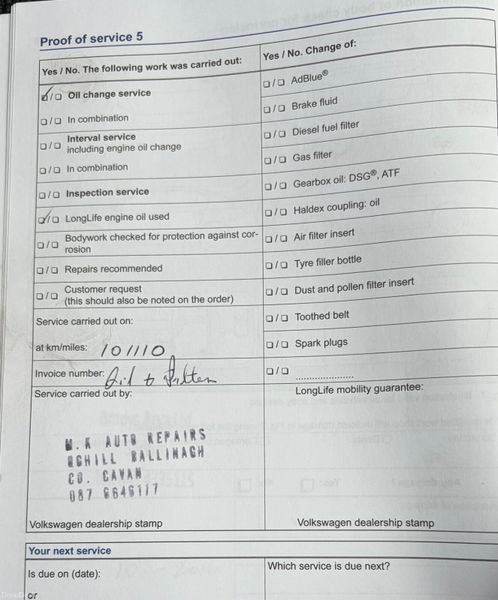 Proof of service 5
Yes / No. The following work was carried out:
☑/☐ Oil change service
☐/☐ In combination
☐/☐ Interval service
including engine oil change
☐/☐ In combination
☐/☐ Inspection service
☑/☐ LongLife engine oil used
☐/☐ Bodywork checked for protection against cor-
rosion
☐/☐ Repairs recommended
☐/☐ Customer request
(this should also be noted on the order)
Service carried out on:
at km/miles: 101110
Invoice number: Oil & Filter
Service carried out by:
M.K AUTO REPAIRS
BALLINAGH
CO. CAVAN
087 6646117
Volkswagen dealership stamp
Yes / No. Change of:
☐/☐ AdBlue®
☐/☐ Brake fluid
☐/☐ Diesel fuel filter
☐/☐ Gas filter
☐/☐ Gearbox oil: DSG®, ATF
☐/☐ Haldex coupling: oil
☐/☐ Air filter insert
☐/☐ Tyre filler bottle
☐/☐ Dust and pollen filter insert
☐/☐ Toothed belt
☐/☐ Spark plugs
☐/☐ ......................
LongLife mobility guarantee:
Volkswagen dealership stamp
Your next service
Is due on (date):
or
Which service is due next?